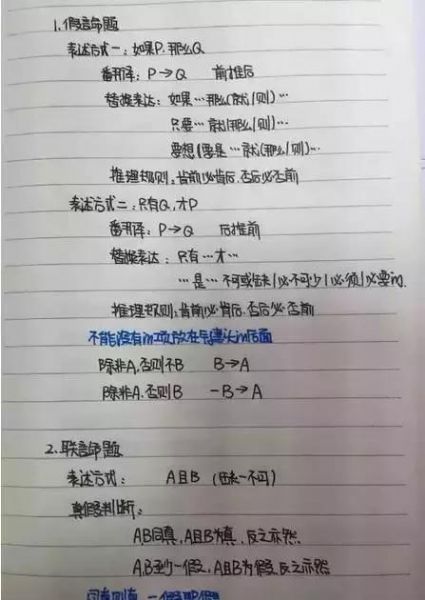 1.假言命题
表达方式一：如果P.那么Q
翻译：P→Q 前推后
替换表达：如果…那么(就/则)…
只要…就(那么/则)…
要想(要是…就(那么/则)…
推理规则：肯前必肯后.否后必否前
表达方式二：只有Q,才P
翻译：P→Q 后推前
替换表达：只有…才…
…是…不可或缺/必不可少/必须/必要的.
推理规则：肯前必肯后.否后必否前
不能没有的项放在箭头的后面
除非A,否则不B B→A
除非A.否则B -B→A
2.联言命题
表达方式：A且B (缺一不可)
真假判断：
AB同真,A且B为真,反之亦然.
A.B至少一假,A且B为假,反之亦然
同真则真 一假即假